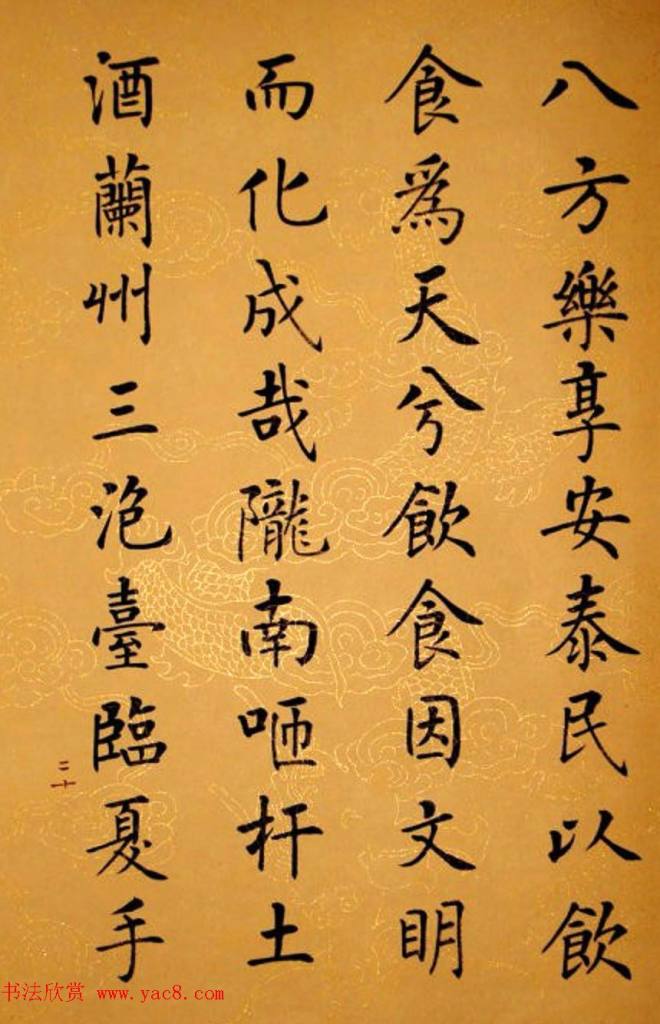 八方樂享安泰民以飲
食爲天兮飲食因文明
而化成哉隴南咂杆土
酒蘭州三泡臺臨夏手
二十
书法欣赏 www.yac8.com